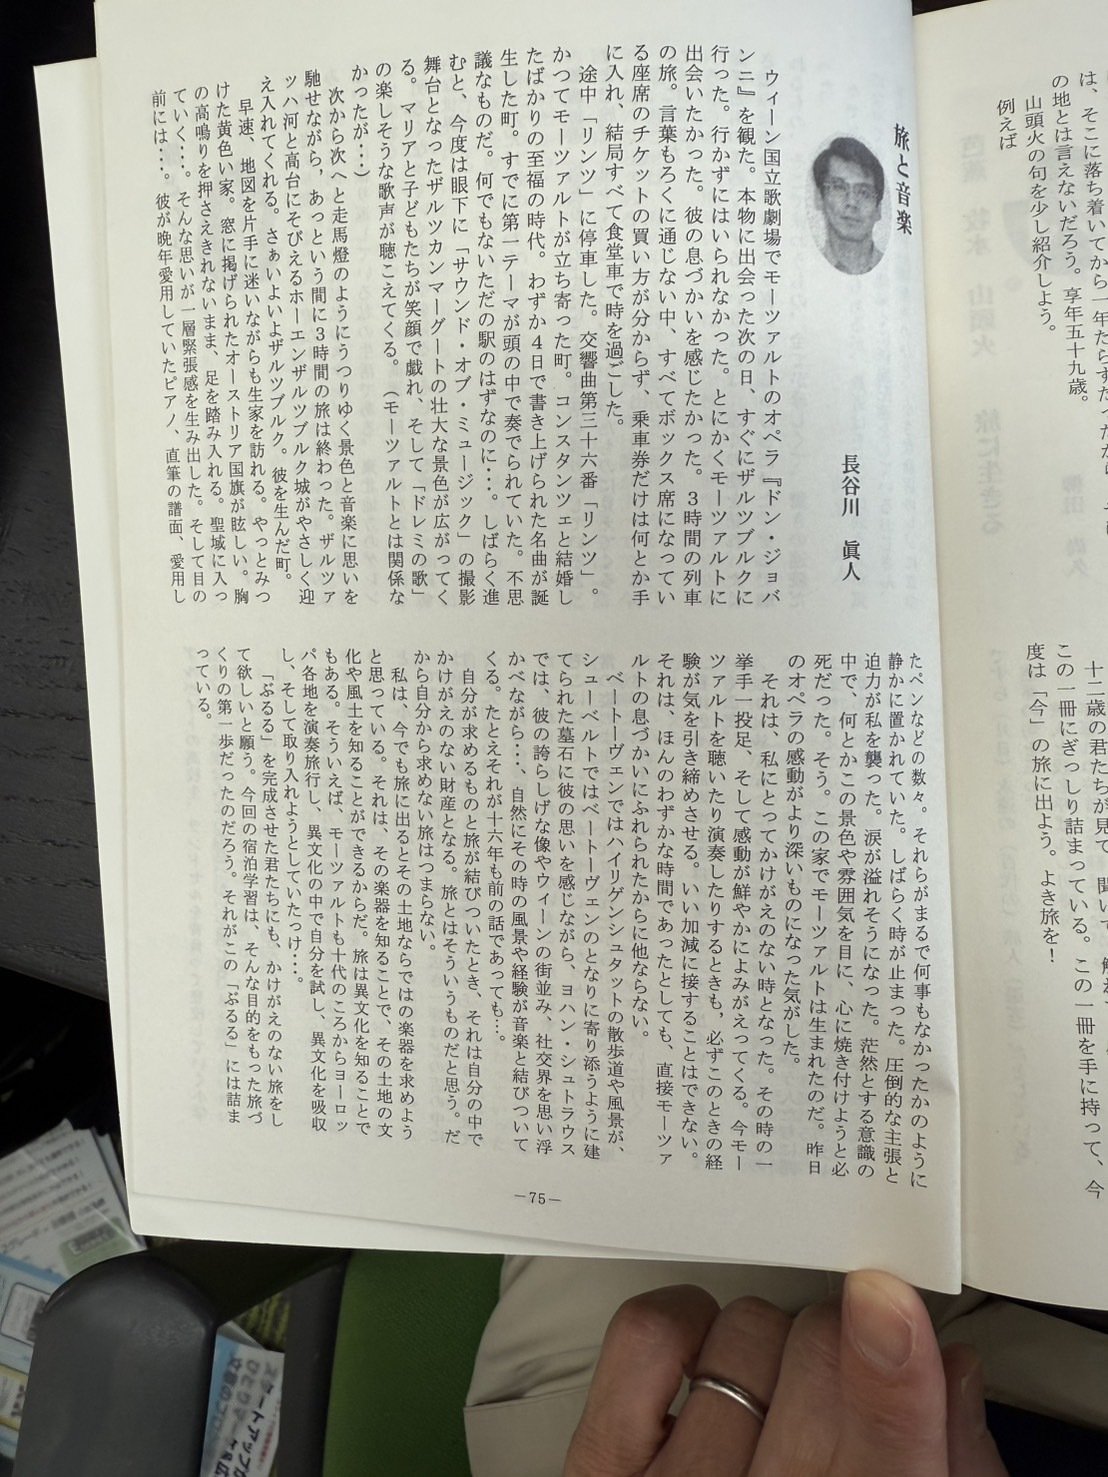 は、そこに落ち着いてから一年たらずだったから
の地とは言えないだろう。享年五十九歳。
山頭火の句を少し紹介しよう。
例えば
十二歳の君たちが見て、聞いて、
この一冊にぎっしり詰まっている。この一冊を手に持って、今
度は「今」の旅に出よう。よき旅を！
旅と音楽
長谷川　眞人
ウィーン国立歌劇場でモーツァルトのオペラ『ドン・ジョバ
ンニ』を観た。本物に出会った次の日、すぐにザルツブルクに
行った。行かずにはいられなかった。とにかくモーツァルトに
出会いたかった。彼の息づかいを感じたかった。３時間の列車
の旅。言葉もろくに通じない中、すべてボックス席になってい
る座席のチケットの買い方が分からず、乗車券だけは何とか手
に入れ、結局すべて食堂車で時を過ごした。
途中「リンツ」に停車した。交響曲第三十六番「リンツ」。
かつてモーツァルトが立ち寄った町。コンスタンツェと結婚し
たばかりの至福の時代。わずか４日で書き上げられた名曲が誕
生した町。すでに第一テーマが頭の中で奏でられていた。不思
議なものだ。何でもないただの駅のはずなのに・・・。しばらく進
むと、今度は眼下に「サウンド・オブ・ミュージック」の撮影
舞台となったザルツカンマーグートの壮大な景色が広がってく
る。マリアと子どもたちが笑顔で戯れ、そして「ドレミの歌」
の楽しそうな歌声が聴こえてくる。（モーツァルトとは関係な
かったが・・・）
次から次へと走馬燈のようにうつりゆく景色と音楽に思いを
馳せながら、あっという間に３時間の旅は終わった。ザルツァ
ッハ河と高台にそびえるホーエンザルツブルク城がやさしく迎
え入れてくれる。さぁいよいよザルツブルク。彼を生んだ町。
早速、地図を片手に迷いながらも生家を訪れる。やっとみつ
けた黄色い家。窓に掲げられたオーストリア国旗が眩しい。胸
の高鳴りを押さえきれないまま、足を踏み入れる。聖域に入っ
ていく・・・。そんな思いが一層緊張感を生み出した。そして目の
前には・・・。彼が晩年愛用していたピアノ、直筆の譜面、愛用し
たペンなどの数々。それらがまるで何事もなかったかのように
静かに置かれていた。しばらく時が止まった。圧倒的な主張と
迫力が私を襲った。涙が溢れそうになった。茫然とする意識の
中で、何とかこの景色や雰囲気を目に、心に焼き付けようと必
死だった。そう。この家でモーツァルトは生まれたのだ。昨日
のオペラの感動がより深いものになった気がした。
それは、私にとってかけがえのない時となった。その時の一
挙手一投足、そして感動が鮮やかによみがえってくる。今モー
ツァルトを聴いたり演奏したりするときも、必ずこのときの経
験が気を引き締めさせる。いい加減に接することはできない。
それは、ほんのわずかな時間であったとしても、直接モーツァ
ルトの息づかいにふれられたからに他ならない。
ベートーヴェンではハイリゲンシュタットの散歩道や風景が、
シューベルトではベートーヴェンのとなりに寄り添うように建
てられた墓石に彼の思いを感じながら、ヨハン・シュトラウス
では、彼の誇らしげな像やウィーンの街並み、社交界を思い浮
かべながら・・・、自然にその時の風景や経験が音楽と結びついて
くる。たとえそれが十六年も前の話であっても・・・。
自分が求めるものと旅が結びついたとき、それは自分の中で
かけがえのない財産となる。旅とはそういうものだと思う。だ
から自分から求めない旅はつまらない。
私は、今でも旅に出るとその土地ならではの楽器を求めよう
と思っている。それは、その楽器を知ることで、その土地の文
化や風土を知ることができるからだ。旅は異文化を知ることで
もある。そういえば、モーツァルトも十代のころからヨーロッ
パ各地を演奏旅行し、異文化の中で自分を試し、異文化を吸収
し、そして取り入れようとしていたっけ・・・。
「ぶるる」を完成させた君たちにも、かけがえのない旅をし
て欲しいと願う。今回の宿泊学習は、そんな目的をもった旅づ
くりの第一歩だったのだろう。それがこの「ぶるる」には詰ま
っている。
－75－
スタートアップ